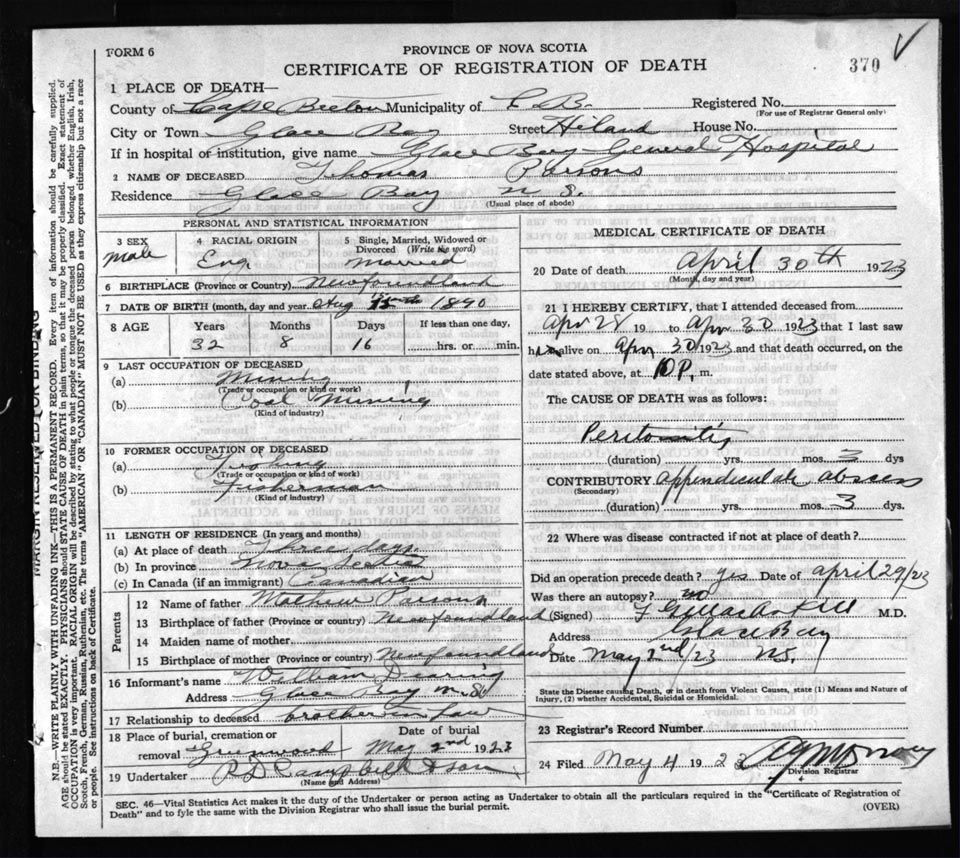 FORM 6
PROVINCE OF NOVA SCOTIA
CERTIFICATE OF REGISTRATION OF DEATH
370
1 PLACE OF DEATH—
County of Cape Breton Municipality of C. B. Registered No.
(For use of Registrar General only)
City or Town Glace Bay Street Hiland House No.
If in hospital or institution, give name Glace Bay General Hospital
2 NAME OF DECEASED Thomas Parsons
Residence Glace Bay N S.
(Usual place of abode)
PERSONAL AND STATISTICAL INFORMATION
3 SEX Male
4 RACIAL ORIGIN Eng.
5 Single, Married, Widowed or Divorced (Write the word) Married
6 BIRTHPLACE (Province or Country) Newfoundland
7 DATE OF BIRTH (month, day and year) Aug 1890
8 AGE Years Months Days If less than one day,
32 8 16 hrs. or min.
9 LAST OCCUPATION OF DECEASED
(a) Mining
(Trade or occupation or kind or work)
(b) Coal Mining
(Kind of industry)
10 FORMER OCCUPATION OF DECEASED
(a) Fishing
(Trade or occupation or kind of work)
(b) Fisherman
(Kind of industry)
11 LENGTH OF RESIDENCE (In years and months)
(a) At place of death Three
(b) In province Nova Scotia
(c) In Canada (if an immigrant) Canadian
Parents
12 Name of father Mathew Parsons
13 Birthplace of father (Province or country) Newfoundland
14 Maiden name of mother
15 Birthplace of mother (Province or country) Newfoundland
16 Informant's name William Dearing
Address Glace Bay N.S.
17 Relationship to deceased brother in law
18 Place of burial, cremation or removal Greenwood Date of burial May 2nd 1923
19 Undertaker R D Campbell & Son
(Name and Address)
MEDICAL CERTIFICATE OF DEATH
20 Date of death April 30th 1923
(Month, day and year)
21 I HEREBY CERTIFY, that I attended deceased from
Apr 28 19 to Apr 30 1923 that I last saw
him alive on Apr 30 1923 and that death occurred, on the
date stated above, at 10 P. m.
The CAUSE OF DEATH was as follows:
Peritonitis
(duration) yrs. mos. 3 dys
CONTRIBUTORY appendicular abscess
(Secondary)
(duration) yrs. mos. 3 dys.
22 Where was disease contracted if not at place of death?
Did an operation precede death? yes Date of april 29/23
Was there an autopsy? no
(Signed) M.D.
Address Glace Bay
Date May 2nd/23 NS.
State the Disease causing Death, or in death from Violent Causes, state (1) Means and Nature of Injury, (2) whether Accidental, Suicidal or Homicidal.
23 Registrar's Record Number
24 Filed May 4 192
Division Registrar
SEC. 46—Vital Statistics Act makes it the duty of the Undertaker or person acting as Undertaker to obtain all the particulars required in the "Certificate of Registration of
Death" and to fyle the same with the Division Registrar who shall issue the burial permit.
(OVER)
MARGIN RESERVED FOR BINDING
N.B.—WRITE PLAINLY WITH UNFADING INK—THIS IS A PERMANENT RECORD. Every item of information should be carefully supplied.
AGE should be stated EXACTLY. PHYSICIANS should STATE CAUSE OF DEATH in plain terms, so that it may be properly classified. Exact statement of
OCCUPATION is very important. RACIAL ORIGIN will be described by stating to what people or tongue the deceased person belonged whether English, Irish,
Scotch, French, German, Russian, Ruthenian, etc. The terms "AMERICAN" or "CANADIAN" MUST NOT BE USED as they express citizenship but not a race
or people. See instructions on back of Certificate.